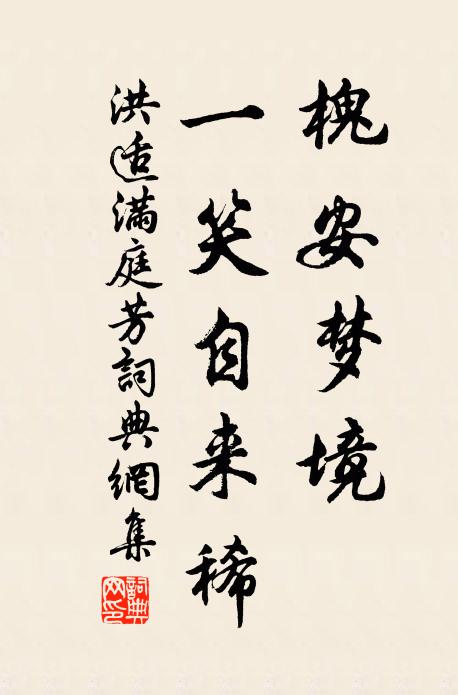 槐安梦境
一笑自来稀
洪适满庭芳詞典網集
詞典网印